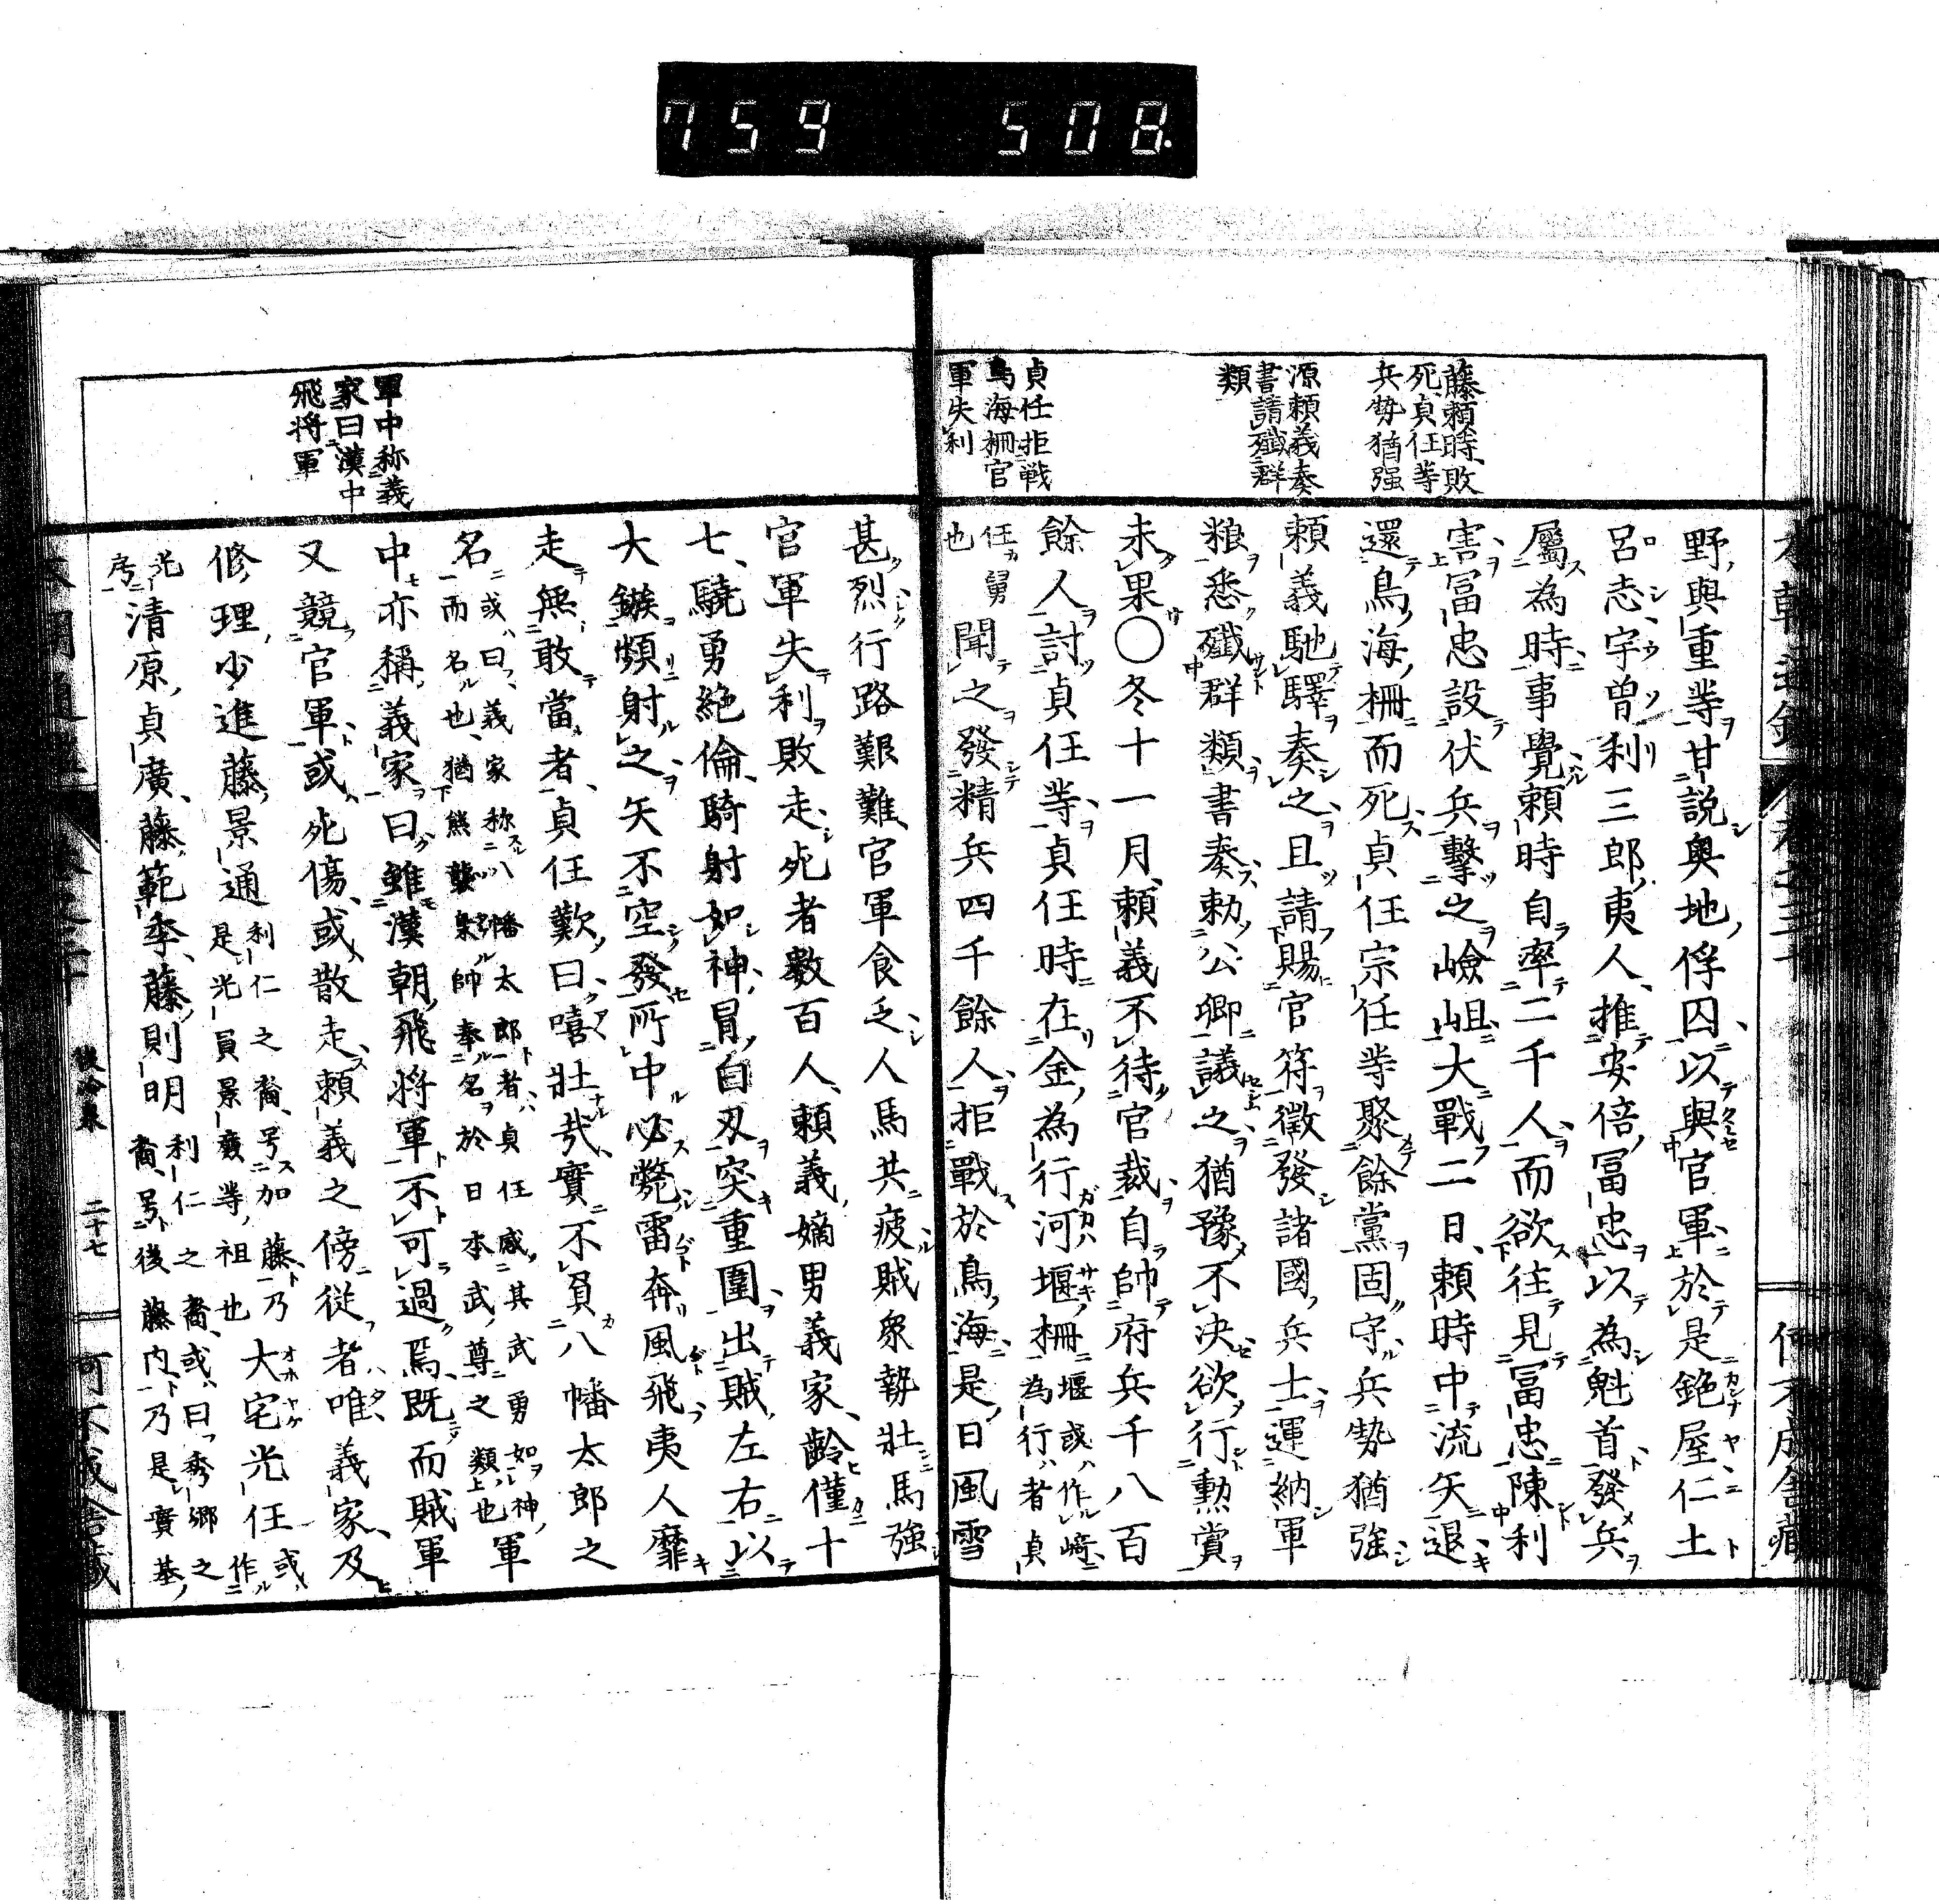 759 508.
藤頼時敗
死貞任等
兵勢猶强
源頼義奏
書請殲群
類
貞任拒戦
鳥海柵官
軍失利
野與重等甘説奥地俘囚以與官軍於是銫屋仁土
呂志宇曽利三郎夷人推安倍冨忠以為魁首發兵
屬為時事覺頼時自率二千人而欲往見冨忠陳利
害冨忠設伏兵擊之嶮岨大戰二日頼時中流矢退
還鳥海柵而死貞任宗任等聚餘黨固守兵勢猶強
頼義馳驛奏之且請賜官符徵發諸國兵士運納軍
粮悉殲群類書奏勅公卿議之猶豫不决欲行勲賞
未果〇冬十一月頼義不待官裁自帥府兵千八百
餘人討貞任等貞任時在金為行河堰柵堰或作﨑為行者貞
任舅也聞之發精兵四千餘人拒戰於鳥海是日風雪
軍中称義
家曰漢中
飛将軍
甚烈行路艱難官軍食乏人馬共疲賊衆勢壮馬強
官軍失利敗走死者數百人頼義嫡男義家齢僅十
七驍勇絶倫騎射如神冒白刃突重圍出賊左右以
大鏃頻射之矢不空發所中必斃雷奔風飛夷人靡
走無敢當者貞任歎曰嘻壮哉實不負八幡太郎之
名或曰義家称八幡太郎者貞任感其武勇如神而名也猶熊襲梟帥奉名於日本武尊之類也軍
中亦稱義家曰雖漢朝飛将軍不可過焉既而賊軍
又競官軍或死傷或散走頼義之傍従者唯義家及
修理少進藤景通利仁之裔号加藤乃是光員景廉等祖也大宅光任或作
光房清原貞廣藤範季藤則明利仁之裔或曰秀郷之裔号後藤内乃是實基
後冷泉
二十七